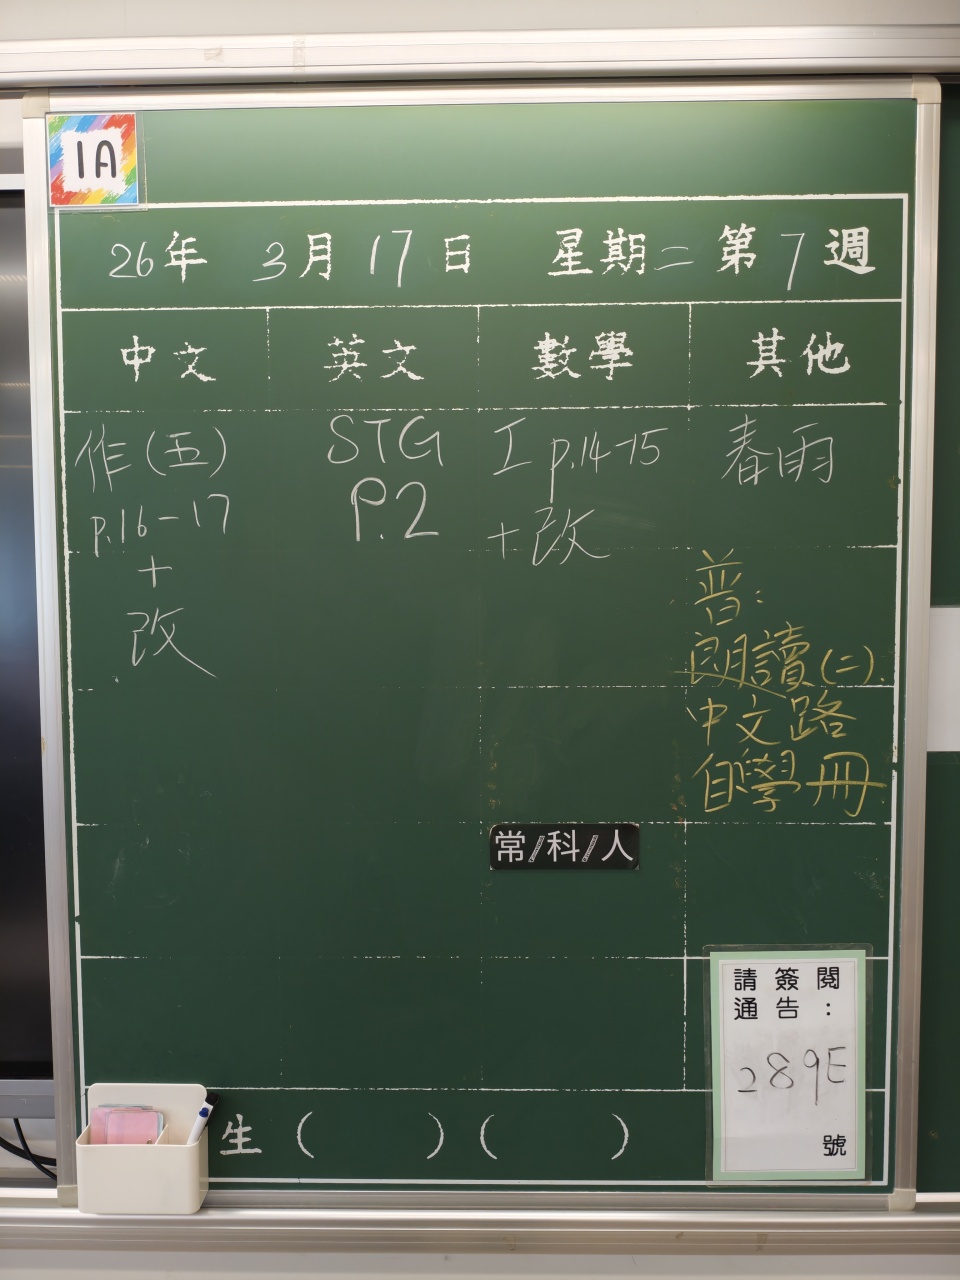 1A
26年 3月17日 星期二 第7週
中文 英文 數學 其他
作(五)
p.16-17
+
改
STG
P.2
工 p.14-15
+改
春雨
普:
朗讀(二).
中文路
自學冊
常/科/人
請簽閱
通告:
289E
號
生 ( ) ( )